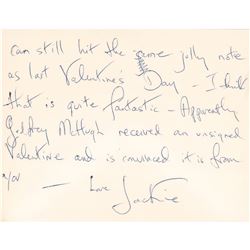 can still hit the same jolly note
as last Valentine's Day - I think
that is quite fantastic - Apparently
Godfrey McHugh received an unsigned
Valentine and is convinced it is from
you — Love Jackie